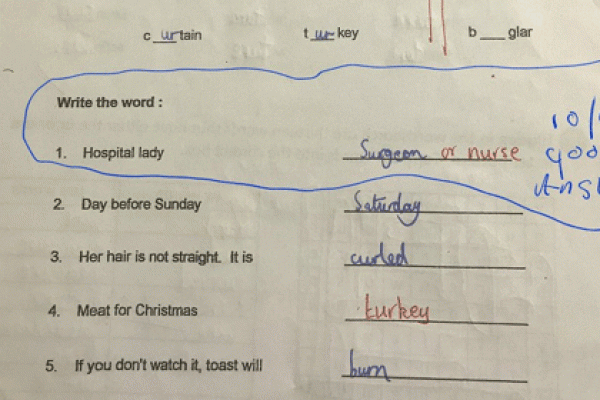 c urtain t ur key b ___ glar
Write the word :
10/
1. Hospital lady Surgeon or nurse
good
Ans
2. Day before Sunday Saturday
3. Her hair is not straight. It is curled
4. Meat for Christmas turkey
5. If you don't watch it, toast will burn